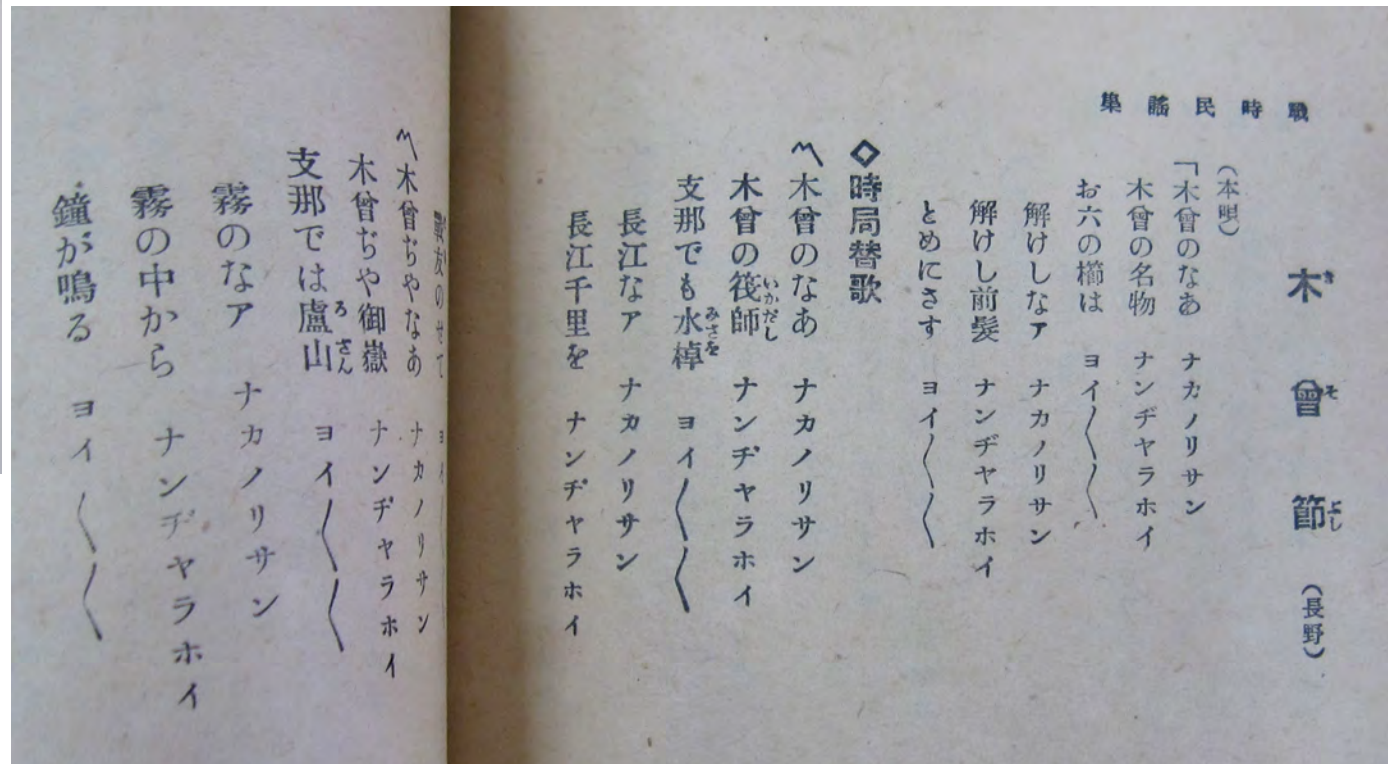 戰時民謠集
木曾節（長野）
きそぶし
（本唄）
「木曾のなあ　ナカノリサン
木曾の名物　ナンヂヤラホイ
お六の櫛は　ヨイ〱〱
解けしなァ　ナカノリサン
解けし前髮　ナンヂヤラホイ
とめにさす　ヨイ〱〱
◇時局替歌
〽木曾のなあ　ナカノリサン
木曾の筏師　ナンヂヤラホイ
いかだし
支那でも水棹　ヨイ〱〱
みさを
長江なァ　ナカノリサン
長江千里を　ナンヂヤラホイ
戰友のせて　ヨイ
〽木曾ぢやなあ　ナカノリサン
木曾ぢや御嶽　ナンヂヤラホイ
支那では盧山　ヨイ〱〱
ろさん
霧のなァ　ナカノリサン
霧の中から　ナンヂヤラホイ
鐘が鳴る　ヨイ〱〱